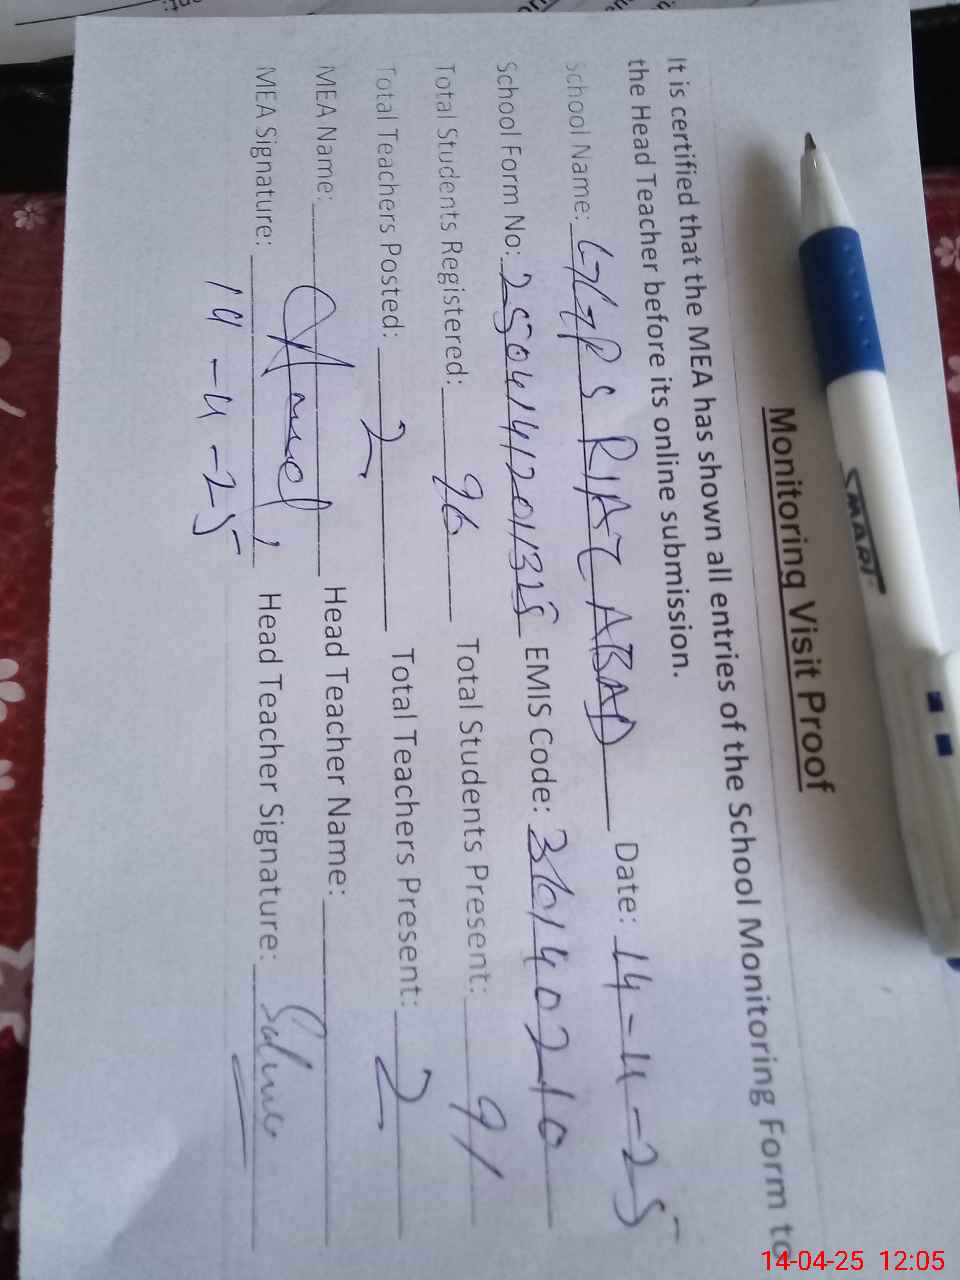 Monitoring Visit Proof
It is certified that the MEA has shown all entries of the School Monitoring Form to
the Head Teacher before its online submission.
School Name: GGPS RIAZ ABAD Date: 14-4-25
School Form No: EMIS Code:
Total Students Registered: 96 Total Students Present: 91
Total Teachers Posted: 2 Total Teachers Present: 2
MEA Name: Head Teacher Name:
MEA Signature: Head Teacher Signature:
14-4-25
SMART
14-04-25 12:05